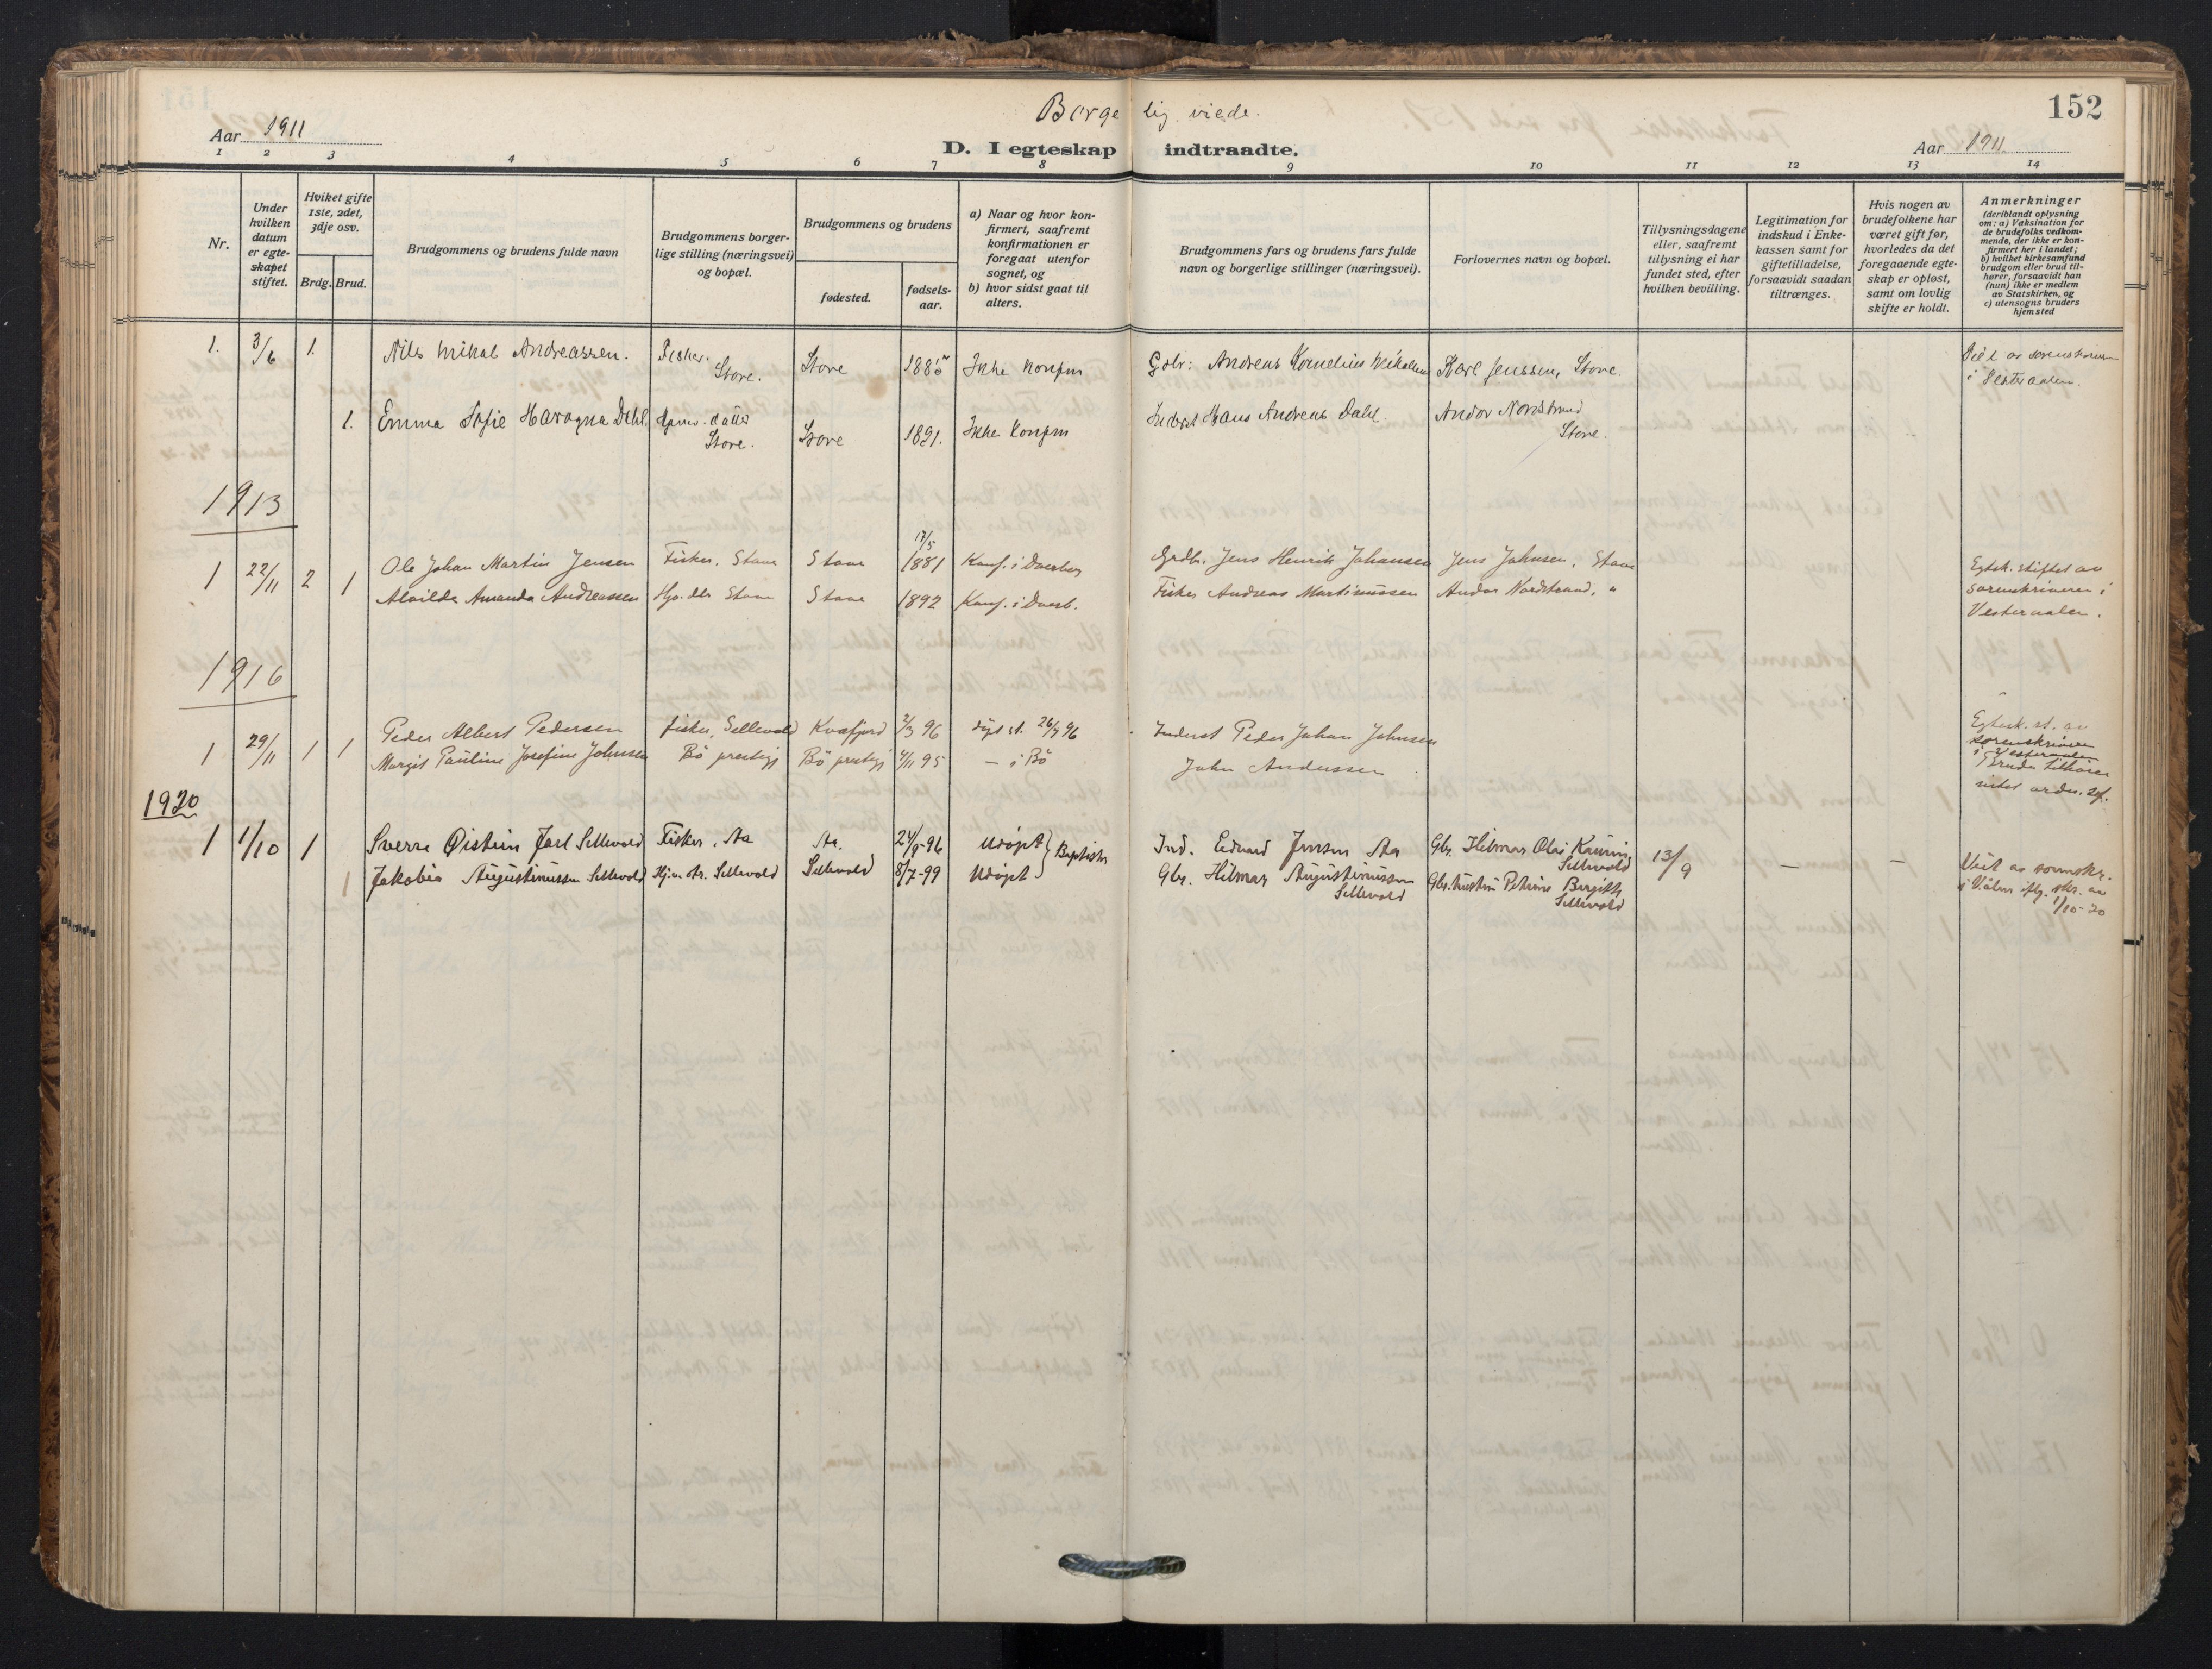 152
Borgelig viede.
Aar 1911
D. I egteskap indtraadte.
Aar 1911.
1 2 3 4 5 6 7 8 9 10 11 12 13 14
Nr.
Under hvilken datum er egteskapet stiftet.
Hviket gifte 1ste, 2det, 3dje osv.
Brdg. Brud.
Brudgommens og brudens fulde navn
Brudgommens borgerlige stilling (næringsvei) og bopæl.
Brudgommens og brudens
fødested.
fødselsaar.
a) Naar og hvor konfirmert, saafremt konfirmationen er foregaat utenfor sognet, og
b) hvor sidst gaat til alters.
Brudgommens fars og brudens fars fulde navn og borgerlige stillinger (næringsvei).
Forlovernes navn og bopæl.
Tillysningsdagene eller, saafremt tillysning ei har fundet sted, efter hvilken bevilling.
Legitimation for indskud i Enkekassen samt for giftetilladelse, forsaavidt saadan tiltrænges.
Hvis nogen av brudefolkene har været gift før, hvorledes da det foregaaende egteskap er opløst, samt om lovlig skifte er holdt.
Anmerkninger
(deriblandt oplysning om: a) Vaksination for de brudefolks vedkommende, der ikke er konfirmert her i landet;
b) hvilket kirkesamfund brudgom eller brud tilhører, forsaavidt han (hun) ikke er medlem av Statskirken, og
c) utensogns bruders hjemsted
1. 3/6 1. Nils Mikal Andreassen. Fisker. Stave. Stave Ikke konfirm Gbr: Andreas Kornelius Karl Jenssen, Stave.
i Vesteraalen.
1. Emma Sofie Dahl. datter Stave. Stave 1891. Ikke konfirm Inderst Hans Andreas Dahl. Andor Nordstrand Stave.
1913
1 22/11 2 1 Ole Johan Martin Jensen Fisker, Stave Stave 17/5 1881 Konf. i Dverberg Grdbr. Jens Henrik Johansen Jens Johnsen, Stave
Alvilde Amanda Andreassen Hjv. dtr Stave Stave 1892 Konf. i Dverb. Fisker Andreas Martinussen Andor Nordstrand, "
Egtsk. stiftet av sorenskriveren i Vesteraalen.
1916
1 29/11 1 1 Peder Albert Pedersen fisker, Sellevold Kvæfjord 2/3 96 døpt st. 26/7 96 Inderst Peder Johan Johnsen
Margit Pauline Josefine Johnsen Bö prestegj Bö prestegj 4/11 95 — i Bö John Andersen
Egtesk. st. av sorenskriveren i Vesteraalen
1920
1 1/10 1 Sverre Øistein Jarl Sellevold Fisker, Aa Aa. 24/9-96 Udøpt } Baptister Ind. Edvard Jensen Aa Gbr. Hilmar Olai Sellevold 13/9 — —
1 Jakobia Augustinussen Sellevold Hjem. dtr. Sellevold Sellevold 8/7-99 Udøpt Gbr. Hilmar Augustinussen Sellevold Gbr. Petrine Birgitte Sellevold
Viet av sorenskr. i V.ålen iflg. skr. av 1/10-20